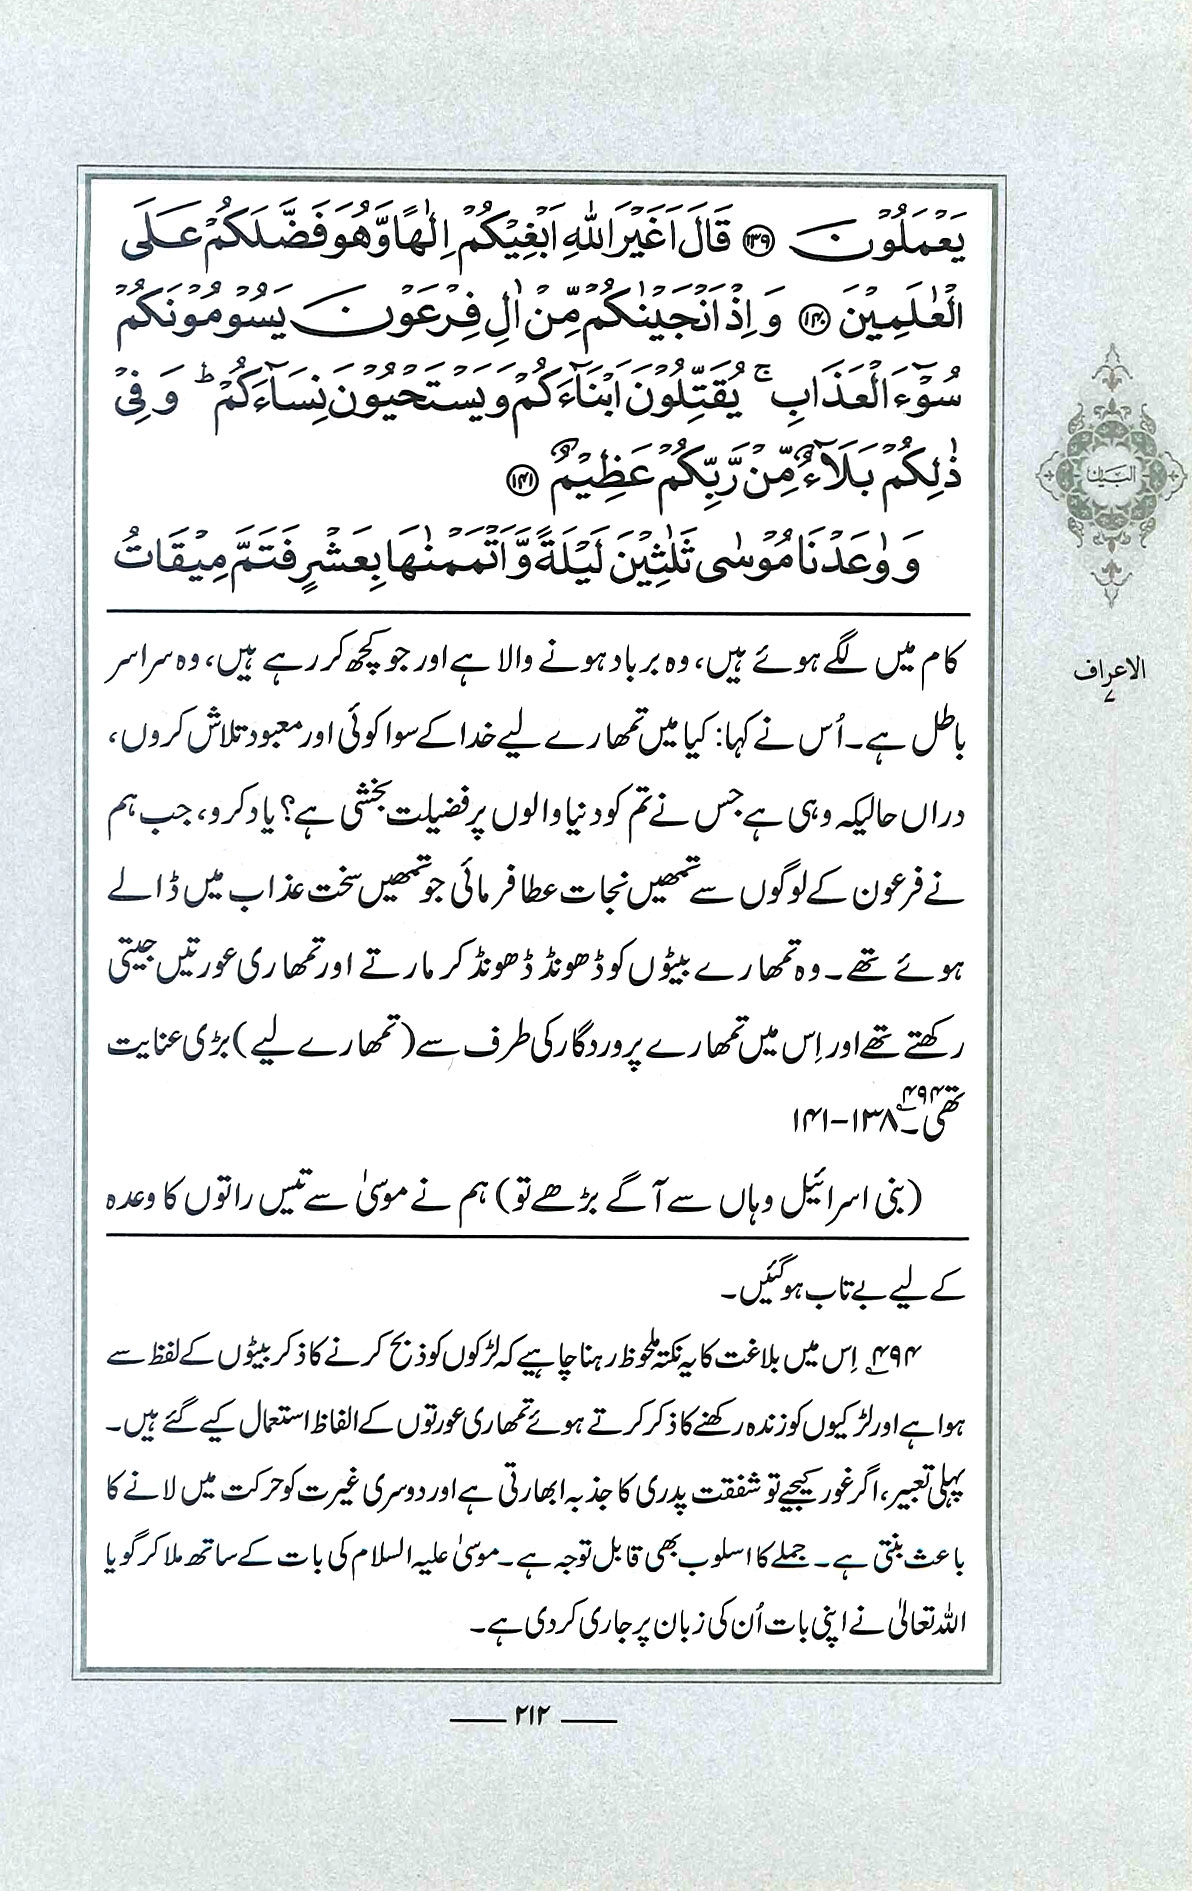 يَعْمَلُوْنَ ﴿۱۳۹﴾ قَالَ اَغَيْرَ اللّٰهِ اَبْغِيْكُمْ اِلٰهًا وَّهُوَ فَضَّلَكُمْ عَلَى
الْعٰلَمِيْنَ ﴿۱۴۰﴾ وَاِذْ اَنْجَيْنٰكُمْ مِّنْ اٰلِ فِرْعَوْنَ يَسُوْمُوْنَكُمْ
سُوْٓءَ الْعَذَابِ ۚ يُقَتِّلُوْنَ اَبْنَآءَكُمْ وَيَسْتَحْيُوْنَ نِسَآءَكُمْ ؕ وَفِيْ
ذٰلِكُمْ بَلَآءٌ مِّنْ رَّبِّكُمْ عَظِيْمٌ ﴿۱۴۱﴾
وَوٰعَدْنَا مُوْسٰى ثَلٰثِيْنَ لَيْلَةً وَّاَتْمَمْنٰهَا بِعَشْرٍ فَتَمَّ مِيْقَاتُ
البیان
الاعراف
۷
کام میں لگے ہوئے ہیں، وہ برباد ہونے والا ہے اور جو کچھ کر رہے ہیں، وہ سراسر
باطل ہے۔ اُس نے کہا: کیا میں تمھارے لیے خدا کے سوا کوئی اور معبود تلاش کروں،
دراں حالیکہ وہی ہے جس نے تم کو دنیا والوں پر فضیلت بخشی ہے؟ یاد کرو، جب ہم
نے فرعون کے لوگوں سے تمھیں نجات عطا فرمائی جو تمھیں سخت عذاب میں ڈالے
ہوئے تھے۔ وہ تمھارے بیٹوں کو ڈھونڈ ڈھونڈ کر مارتے اور تمھاری عورتیں جیتی
رکھتے تھے اور اِس میں تمھارے پروردگار کی طرف سے (تمھارے لیے) بڑی عنایت
تھی۔ ۴۹۴ ۱۳۸-۱۴۱
(بنی اسرائیل وہاں سے آگے بڑھے تو) ہم نے موسیٰ سے تیس راتوں کا وعدہ
کے لیے بے تاب ہو گئیں۔
۴۹۴ اِس میں بلاغت کا یہ نکتہ ملحوظ رہنا چاہیے کہ لڑکوں کو ذبح کرنے کا ذکر بیٹوں کے لفظ سے
ہوا ہے اور لڑکیوں کو زندہ رکھنے کا ذکر کرتے ہوئے تمھاری عورتوں کے الفاظ استعمال کیے گئے ہیں۔
پہلی تعبیر، اگر غور کیجیے تو شفقت پدری کا جذبہ ابھارتی ہے اور دوسری غیرت کو حرکت میں لانے کا
باعث بنتی ہے۔ جملے کا اسلوب بھی قابل توجہ ہے۔ موسیٰ علیہ السلام کی بات کے ساتھ ملا کر گویا
اللہ تعالیٰ نے اپنی بات اُن کی زبان پر جاری کر دی ہے۔
۲۱۲